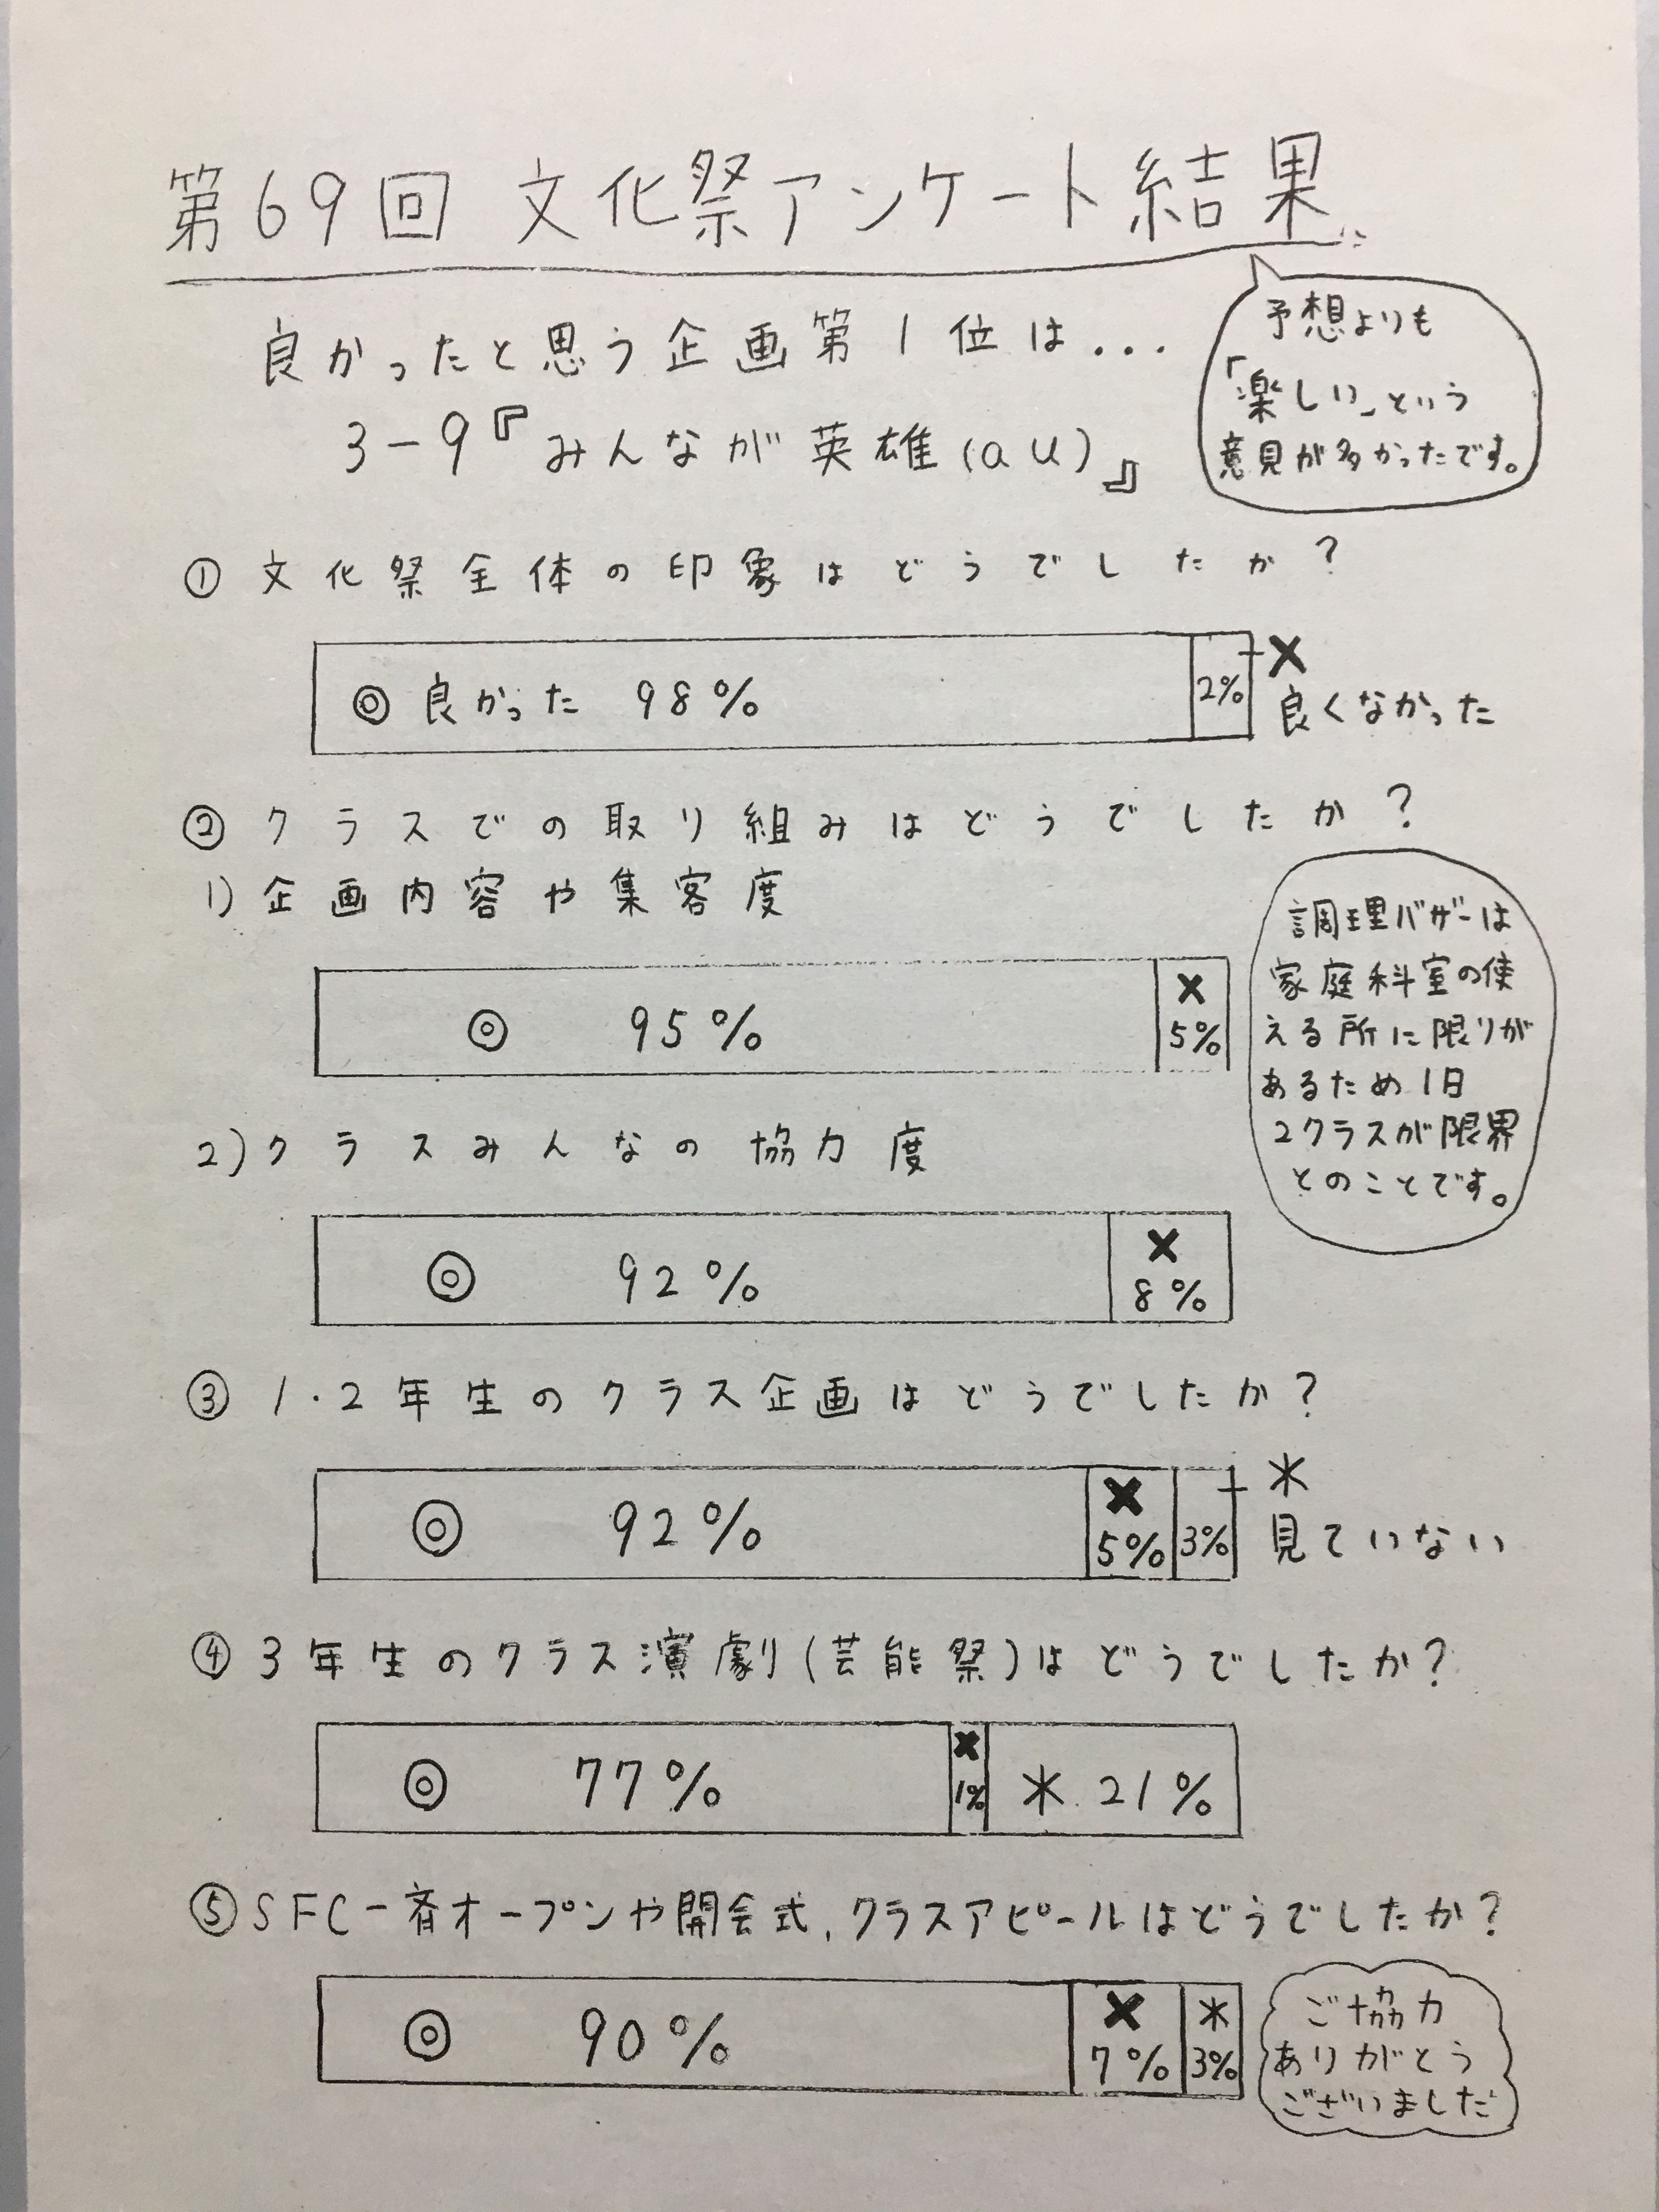 第69回 文化祭アンケート結果
予想よりも
「楽しい」という
意見が多かったです。
良かったと思う企画第1位は...
3-9『みんなが英雄(au)』
① 文化祭全体の印象はどうでしたか?
◎ 良かった 98%
2%
×
良くなかった
② クラスでの取り組みはどうでしたか?
1) 企画内容や集客度
◎ 95%
×
5%
調理バザーは
家庭科室の使
える所に限りが
あるため1日
2クラスが限界
とのことです。
2) クラスみんなの協力度
◎ 92%
×
8%
③ 1・2年生のクラス企画はどうでしたか?
◎ 92%
×
5%
3%
＊
見ていない
④ 3年生のクラス演劇(芸能祭)はどうでしたか?
◎ 77%
×
1%
＊ 21%
⑤ SFC一斉オープンや開会式、クラスアピールはどうでしたか?
◎ 90%
×
7%
＊
3%
ご協力
ありがとう
ございました